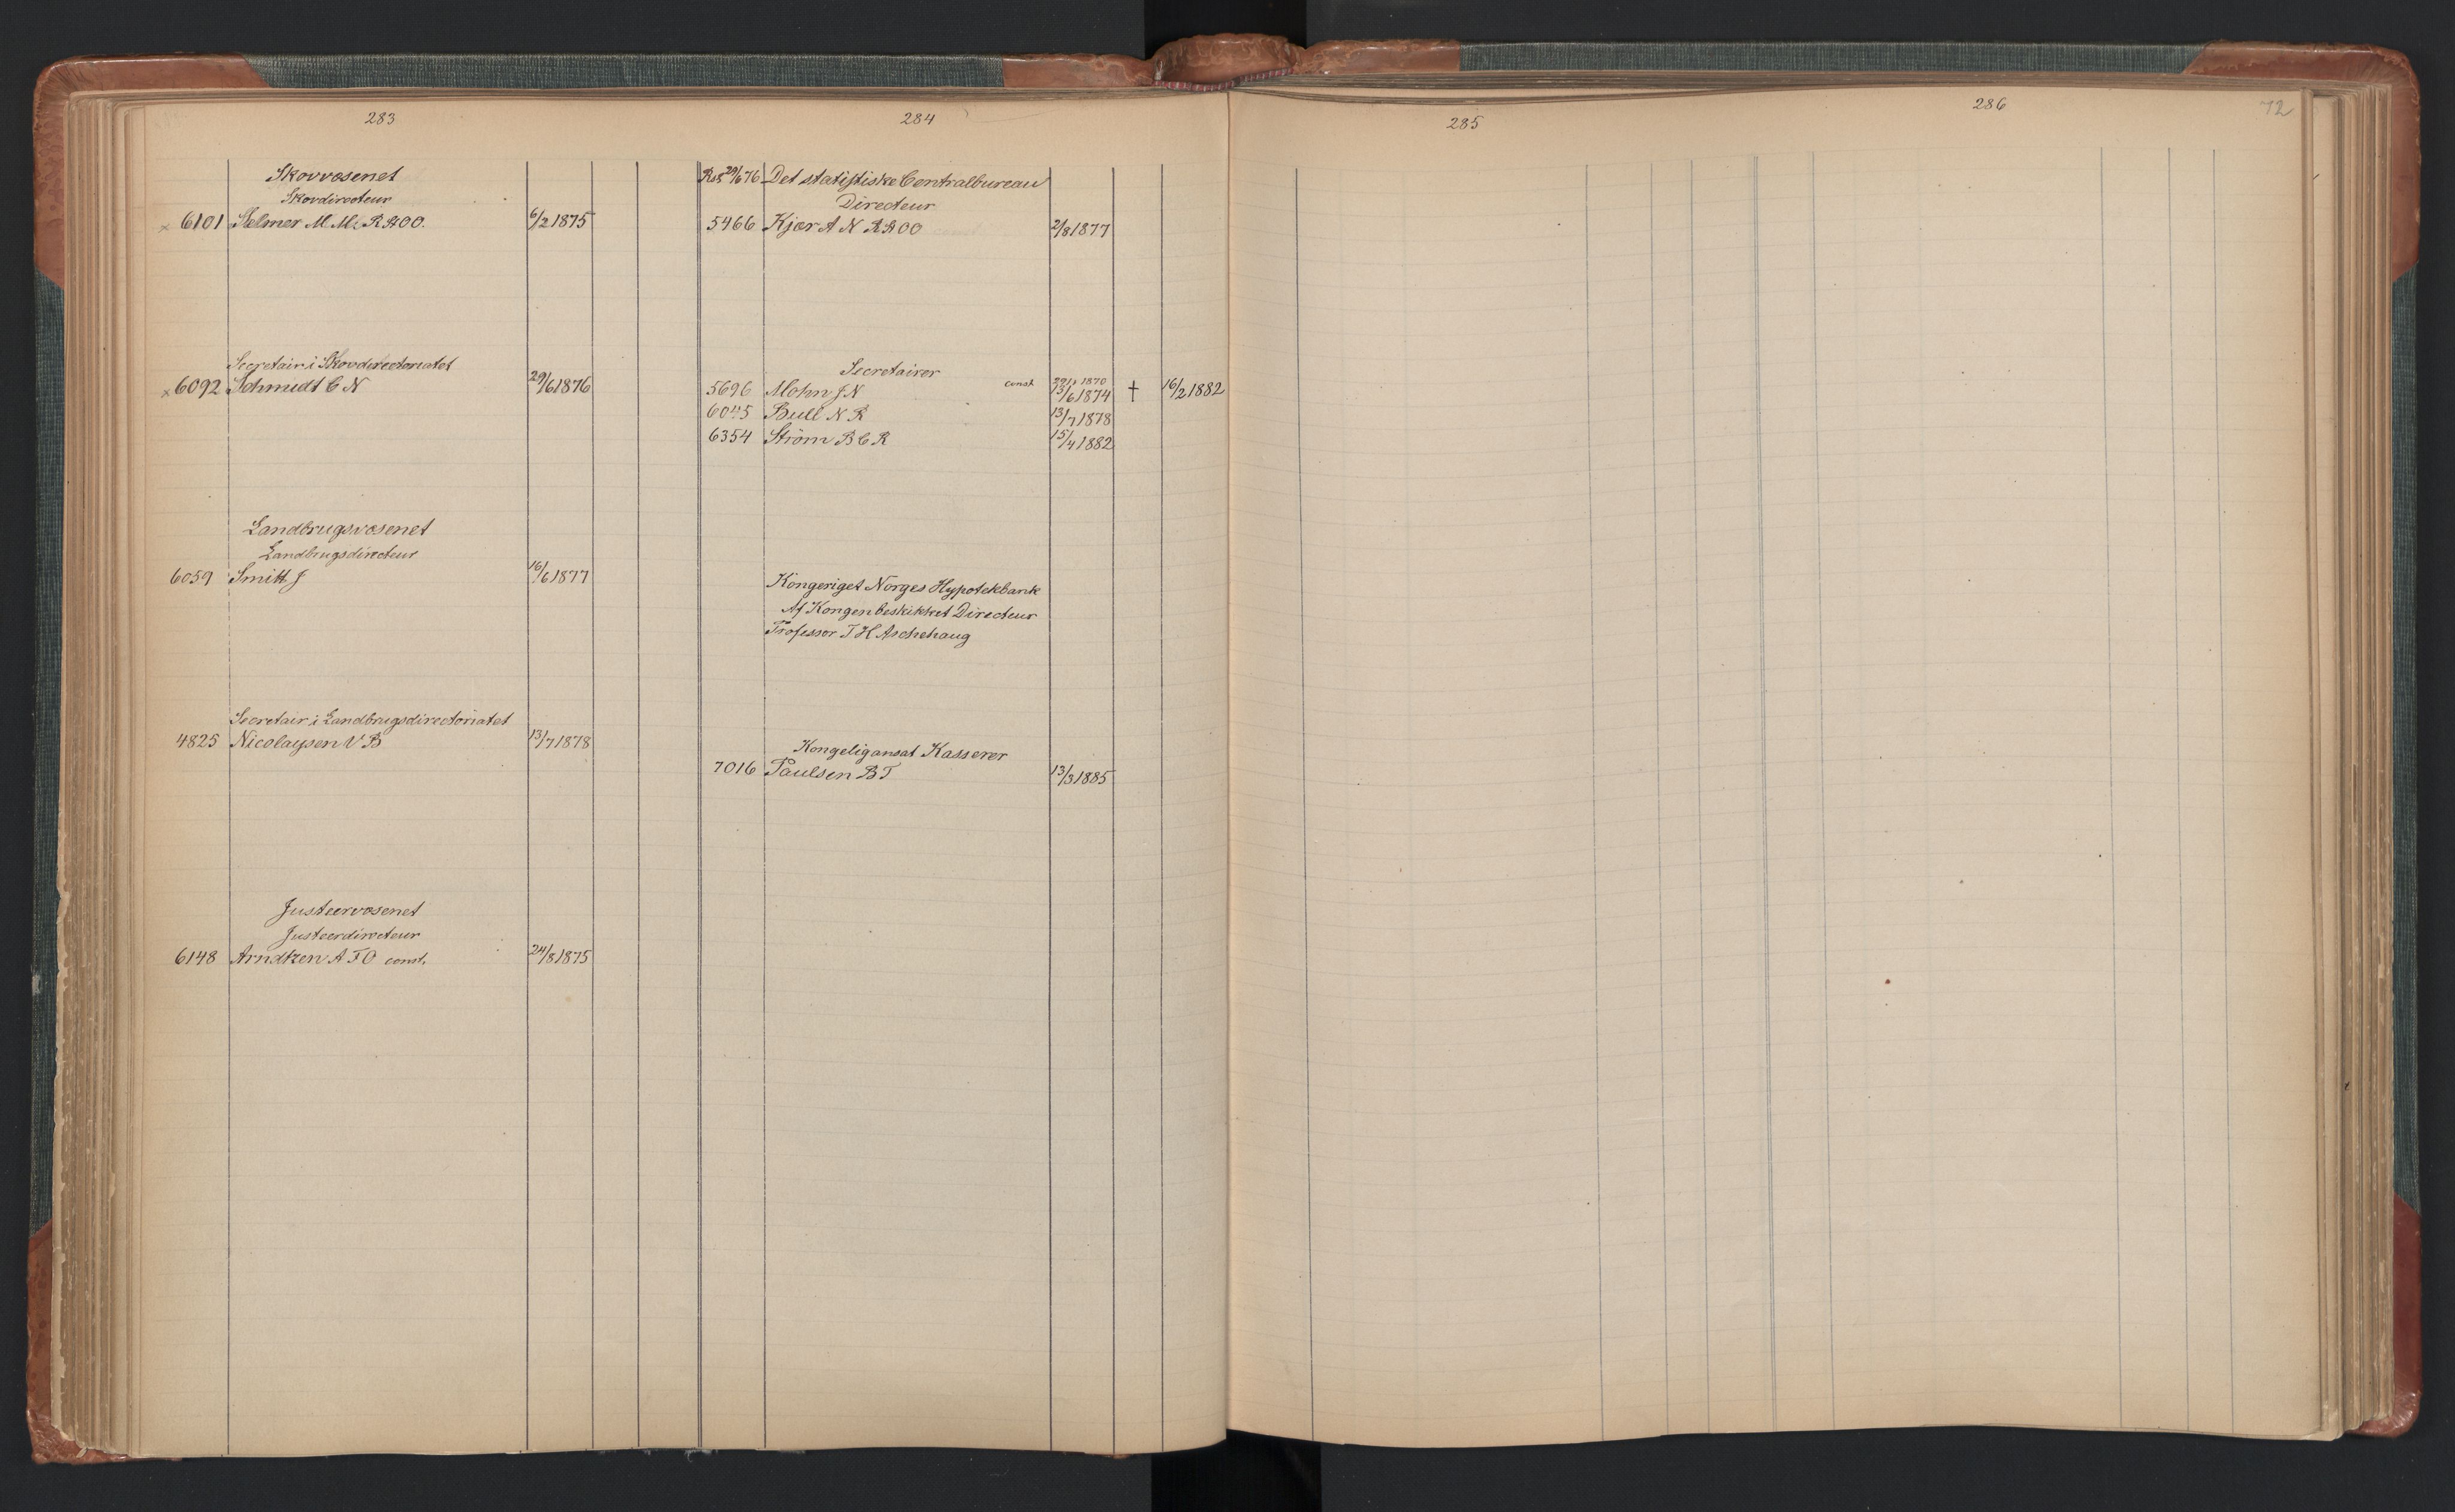 283
Skovvæsenet
Skovdirecteur
× 6101 Selmer M M: R St O O. 6/2 1875
Secretair i Skovdirectoriatet
× 6092 Schmidt C N 29/6 1876
Landbrugsvæsenet
Landbrugsdirecteur
6059 Smitt J 16/6 1877
Secretair i Landbrugsdirectoriatet
4825 Nicolaysen V B 13/7 1878
Justeervæsenet
Justeerdirecteur
6148 Arndtzen A T O const. 24/8 1875
284
29/6 76 Det statistiske Centralbureau
Directeur
5466 Kjær A N R St O O 2/8 1877
Secretairer
5696 Mohn J N const 1870
13/6 1874 † 16/2 1882
6045 Bull N R 13/7 1878
6354 Ström B C R 15/4 1882
Kongeriget Norges Hypotekbank
Af Kongen beskikket Directeur
Professor T H Aschehaug
Kongelig ansat Kasserer
7016 Paulsen B T 13/3 1885
285
286
72